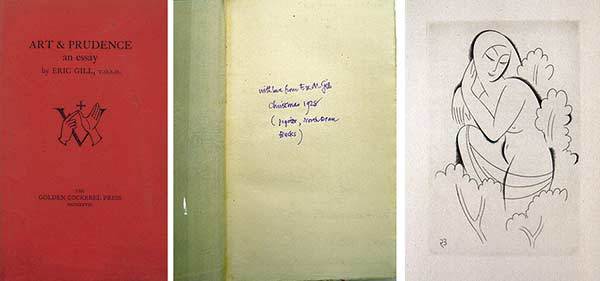 ART & PRUDENCE
an essay
by ERIC GILL, T.O.S.D.
THE
GOLDEN COCKEREL PRESS
MCMXXVIII
with love from E & M. Gill
Christmas 1928
(Pigotts, North Dean
Bucks)